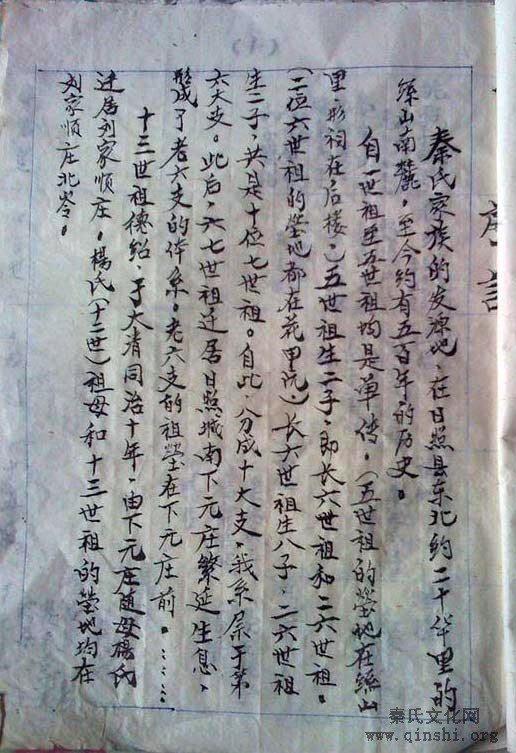 （1）
秦氏家族的发源地，在日照县东北约二十华里的
丝山南麓。至今约有五百年的历史。
自一世祖至五世祖均是单传。（五世祖的茔地在丝山
里，形祠在后楼。）五世祖生二子，即长六世祖和二六世祖。
（二位六世祖的茔地都在花里沉）长六世祖生八子，二六世祖
生二子，共是十位七世祖。自此，分成十大支，我系属于第
六大支。此后，六七世祖迁居日照城南下元庄繁延生息，
形成了老六支的体系。老六支的祖茔在下元庄前。……
十三世祖德绍，于大清同治十年，由下元庄随母杨氏
迁居刘家顺庄。杨氏（十二世）祖母和十三世祖的茔地均在
刘家顺庄北岺。
秦氏文化网
www.qinshi.org